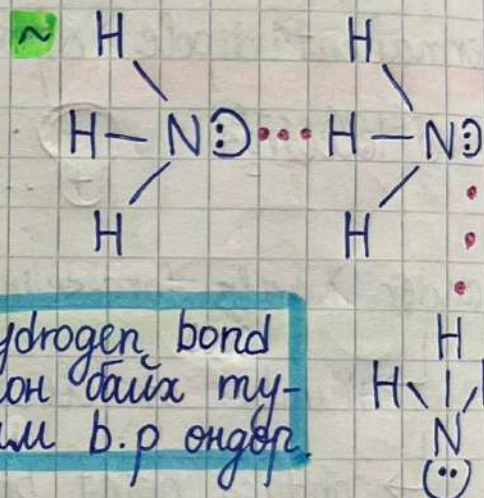 ~ H H
H — N : ••• H — N :
H H
ydrogen bond
он байх ту-
им b.p өндөр
H
H \ | /
N
(••)